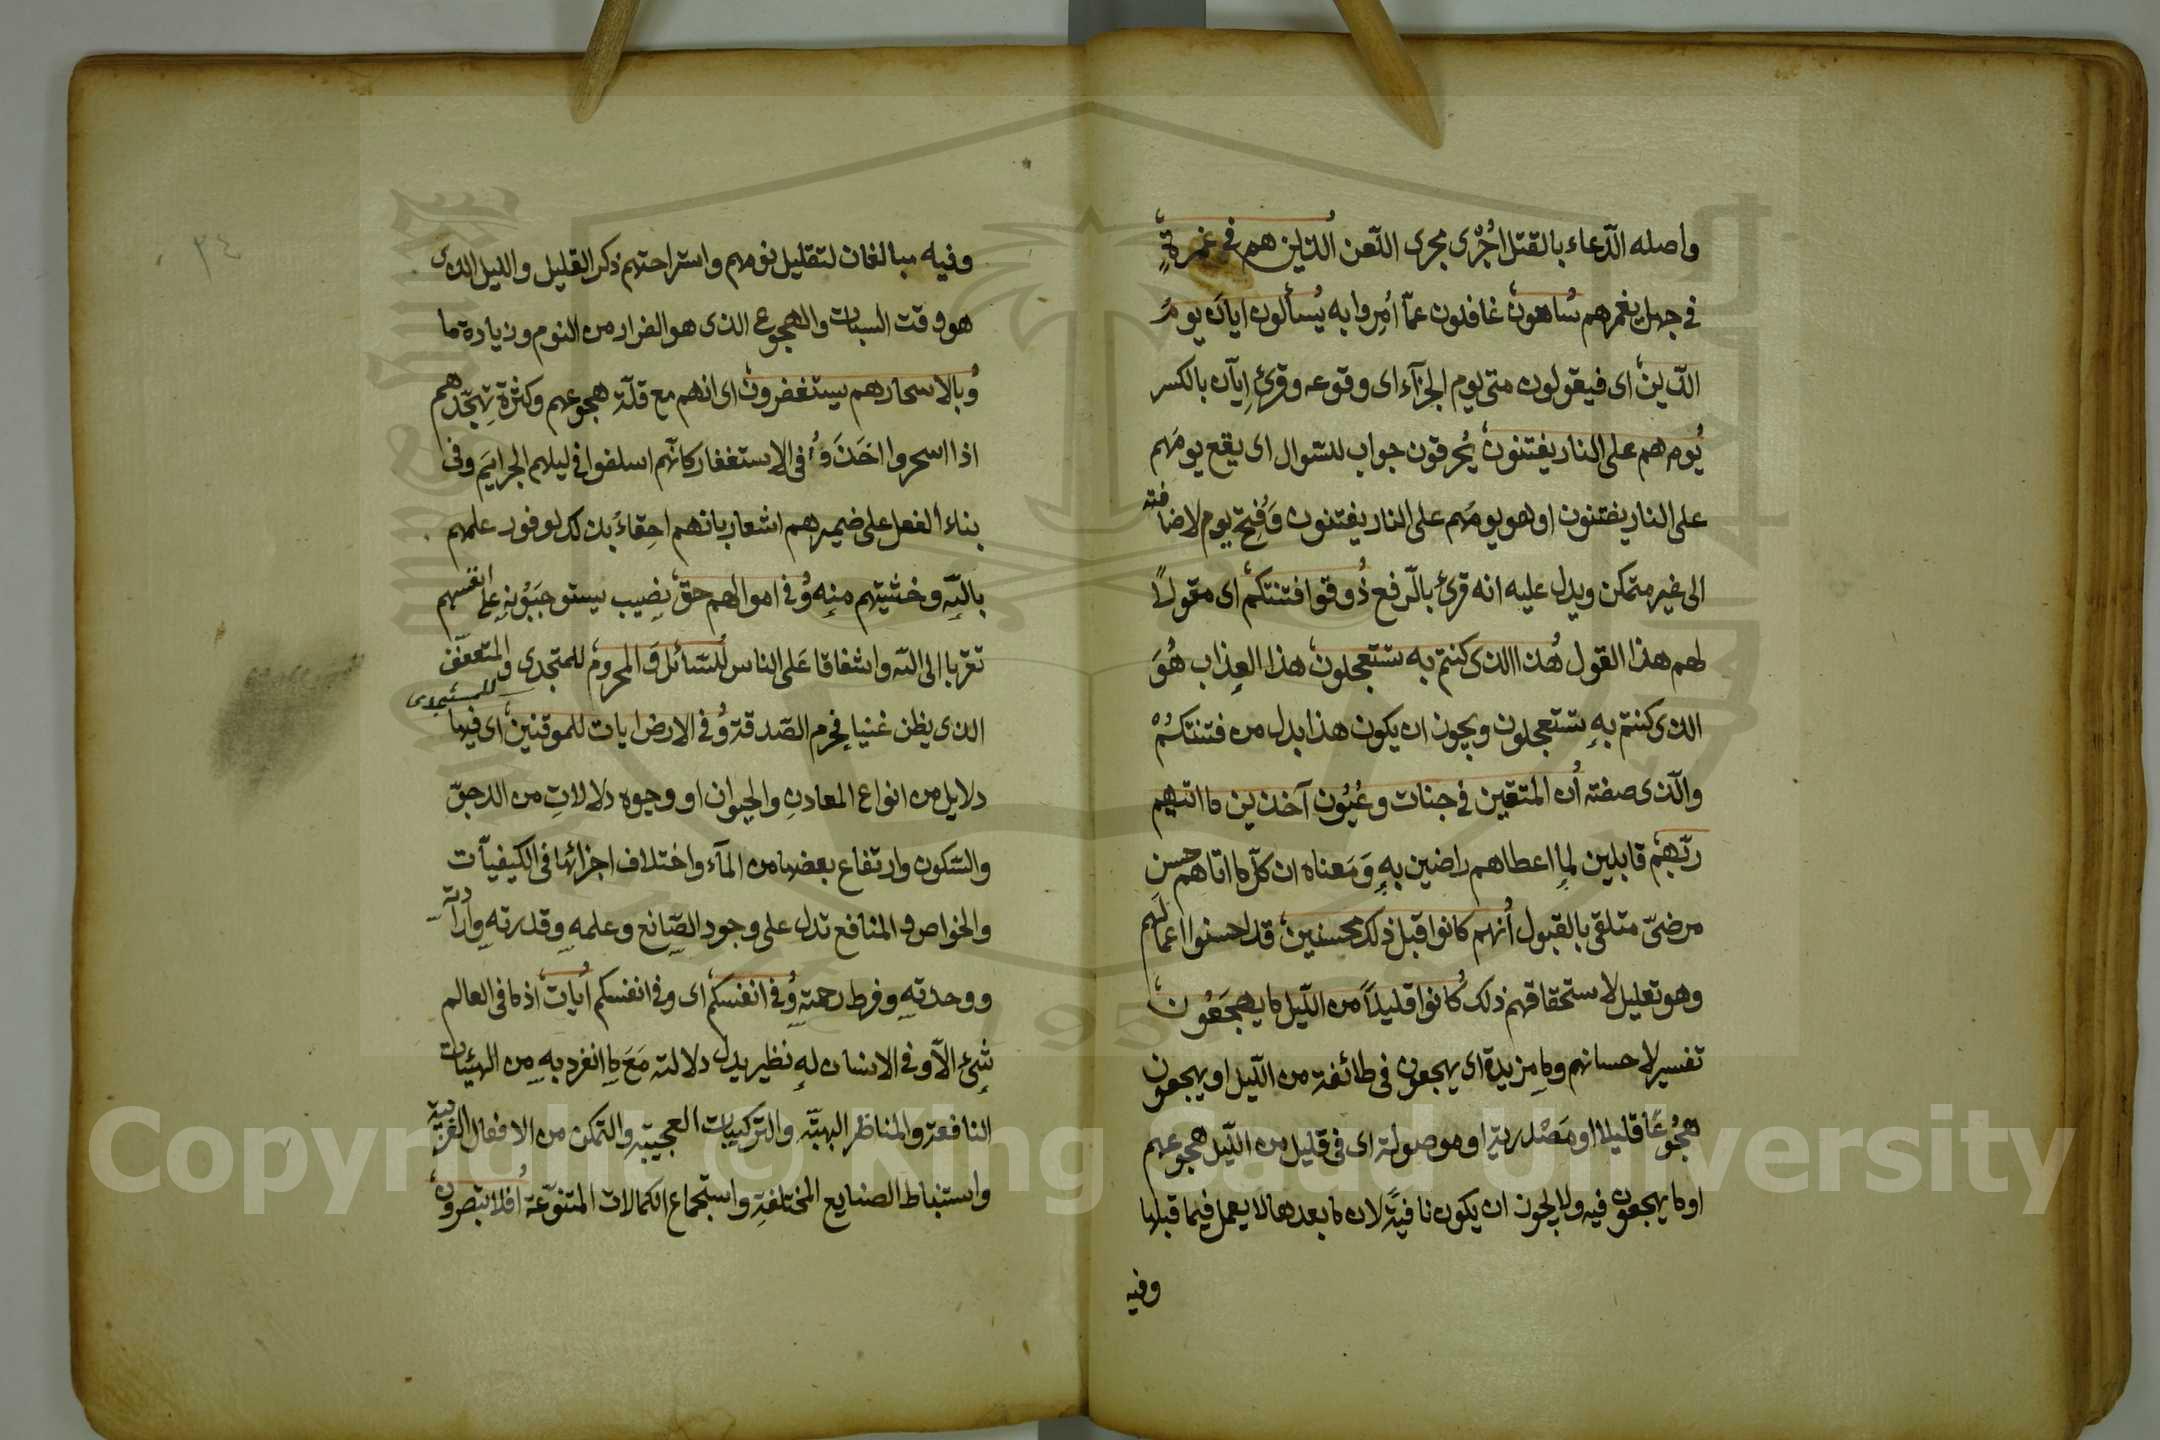 واصله الدّعاء بالقتل اُجْرى مجرى اللّعن الذين هم فى غمرةٍ
فى جهل يغمرهم ساهون غافلون عمّا اُمِروا به يُسألون ايان يومُ
الدّين اى فيقولون متى يوم الجزآء اى وقوعه وقرئ اِيآن بالكسر
يوم هم على النار يفتنون يُحرقون جواب للسّوال اى يقع يومَهم
على النار يفتنون او هو يومهم على النار يفتنون وَفُتِحَ يوم لاضافته
الى غير متمكن ويدل عليه انه قرئ بالرّفع ذُوقوا فتنتكم اى مقولاً
لهم هذا القول هذا الذى كنتم به تستعجلون هذا العذاب هُوَ
الذى كنتم بهِ تستعجلون ويجوز ان يكون هذا بدل من فتنتكُمْ
والّذى صفته اُن المتقين فى جنات وعُيُون آخذين ما اتيهم
ربّهم قابلين لِما اعطاهم راضين بهِ وَمَعناه ان كلّ ما اتاهم حسن
مرضىّ متلقى بالقبول اُنهم كانوا قبل ذلك محسنين قد احسنوا اعمالَهم
وهو تعليل لاستحقاقهم ذلك كُانوا قليلاً من اللّيل ما يهجَعُون
تفسير لاحسانهم وما مزيدة اى يهجعون فى طائفة من اللّيل او يهجعون
هجُوُعًا قليلا او مَصْدرية او موصولة اى فى قليل من اللّيل هجوعهم
او ما يهجعون فيه ولا يجوز ان يكون نافيةً لان ما بعدها لا يعمل فيما قبلها
وفيه
٣٤
وفيه مبالغات لتقليل نومهم واستراحتهم ذكر القليل والليل الذى
هو وقت السبات والهجوع الذى هو الفرار من النوم وزيادة ما
وُبالاسحار هم يستغفرون اى انهم مع قلّة هجوعهم وكثرة تهجّدهم
اذا اسحروا اخَذَوُا فى الاستغفار كانّهم اسلفوا فى ليلهم الجرايم وفى
بناء الفعل على ضميرهم اشعار بانهم احِقاءُ بذلك لوفور علمهم
باللّهِ وخشيتهم منهِ وُفى اموالهم حق نصِيب يستوجبُونهِ على انفسهم
تقرّبا الى اللّه واشفاقا عَلى الناس للسّائل وَالمحروم للمتجدى والمتعفّف
للمستجدى
الذى يظن غنيا فِيحرم الصّدقة وُفى الارض ايات للموقنين اى فيها
دلايل من انواع المعادنِ والحيوان او وجوه دلالاتِ من الدحوّ
والسّكون وارتفاع بعضها من المآء واختلاف اجزائها فى الكيفيآت
والخواص و المنافع تدل على وجود الصِّانع وعلمهِ وقدرتهِ وارادتهِ
ووحدتهِ وفرط رحمتهِ وُفى انفسكم اى وفى انفسكم اُيات اذ ما فى العالم
شِئ الاّ وفى الانسان لهِ نظير يدل دلالته مَعَ ما انفرد بهِ من الهيئات
النافعة والمناظر البهيّه والتركيبات العجيبة والتمكن من الافعال الغريبة
واستنباط الصنايع المختلفةِ واستجماع الكمالات المتنوّعة اُفلا تبصرون
Copyright © King Saud University
1957